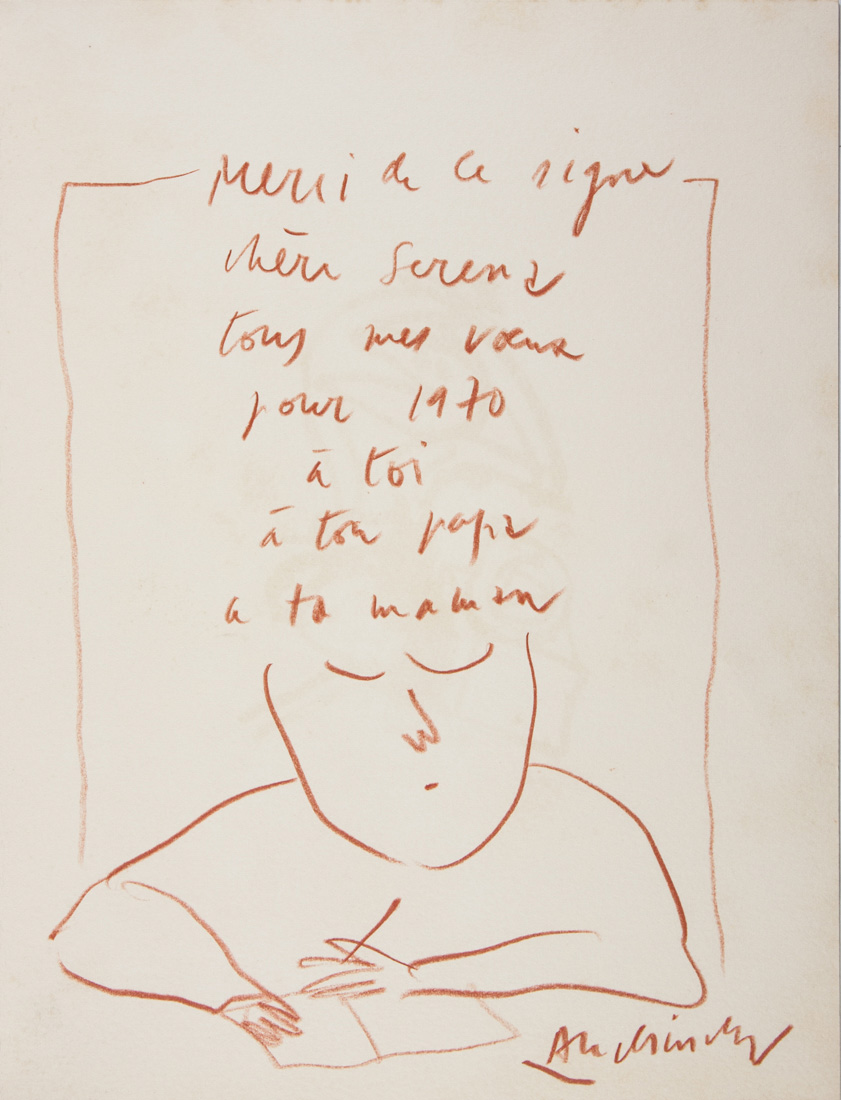 Merci de ce signe
chère Serena
tous mes vœux
pour 1970
à toi
à ton papa
a ta maman
Alechinsky